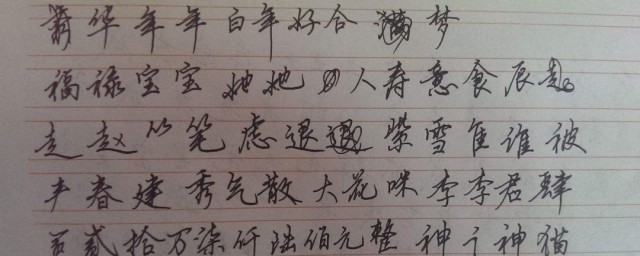 菁华年年百年好合满梦
福禄宝宝她她人寿意食辰
走赵竹笔虑退紫雪隹谁被
丰春建秀气散大花咪李李君肆
百贰拾万柒仟陆佰元整神亻神猫